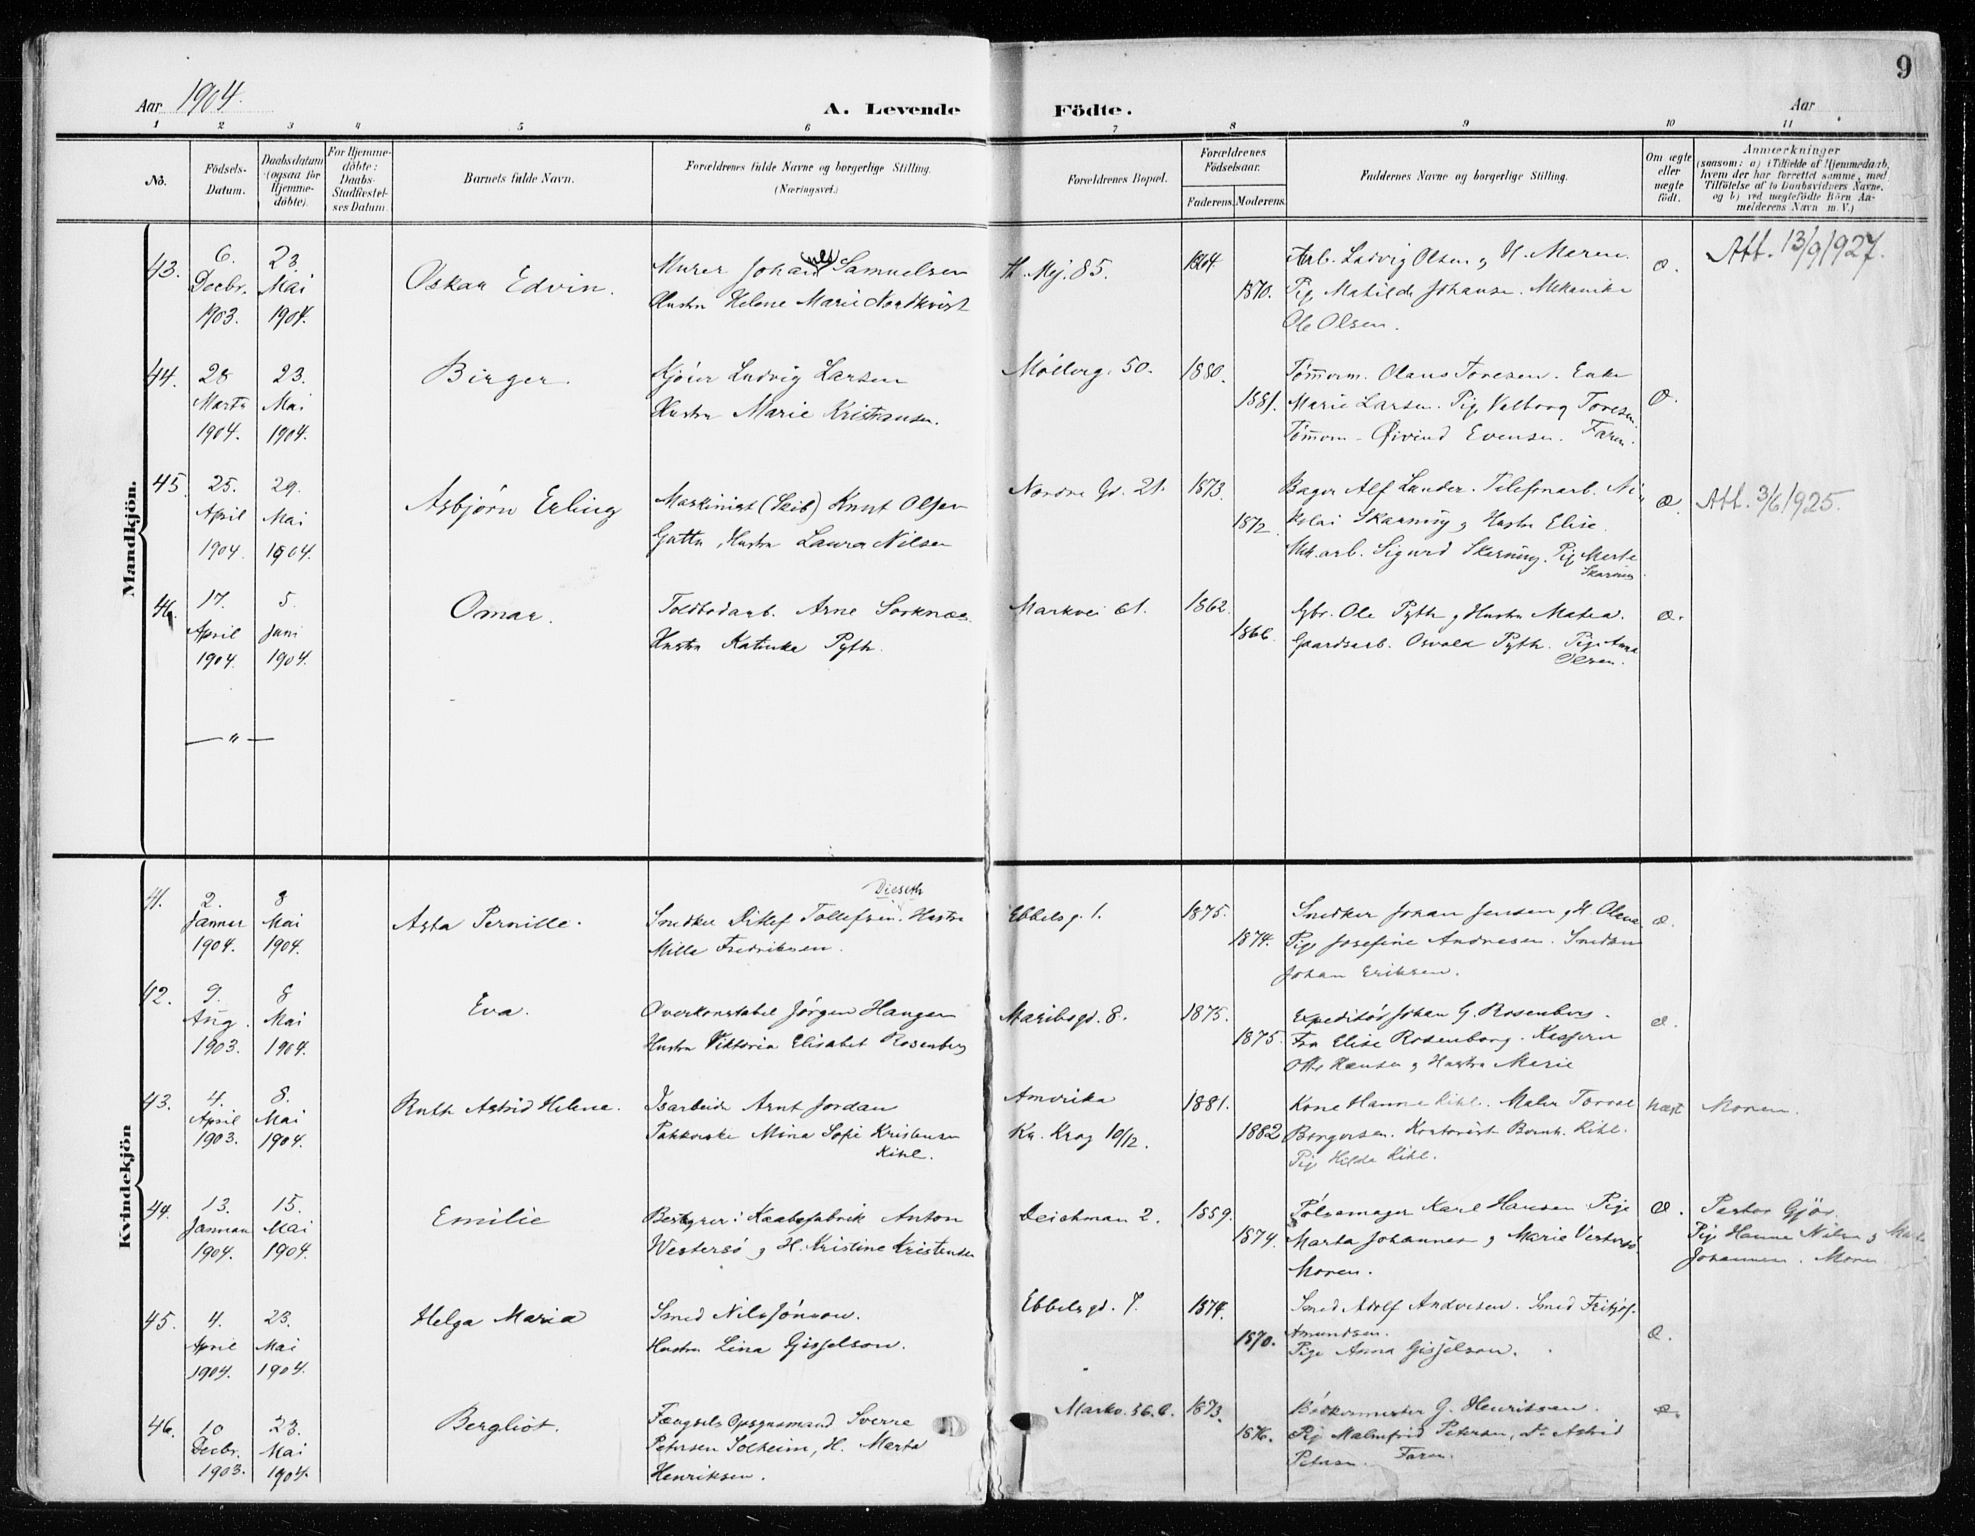 9
Aar 1904.
A. Levende Födte.
Aar
1 2 3 4 5 6 7 8 9 10 11
No.
Födsels-Datum.
Daabsdatum (ogsaa for Hjemme-döbte).
For Hjemme-döbte: Daabs-Stadfæstel-ses Datum.
Barnets fulde Navn.
Forældrenes fulde Navne og borgerlige Stilling.
(Næringsvei.)
Forældrenes Bopæl.
Forældrenes Födselsaar.
Faderens. Moderens.
Faddernes Navne og borgerlige Stilling.
Om ægte eller uægte födt.
Anmærkninger
(saasom: a) i Tilfælde af Hjemmedaab,
hvem der har forrettet samme, med
Tilföielse af to Daabsvidners Navne.
og b) ved uægtefödte Börn An-
melderens Navn m. V.)
Mandkjön.
43. 6. 23. Murer Johan Samuelsen 1864. Arb. Ludvig Olsen og H. Maren æ. Att. 13/9 1927.
Decbr. Mai Oskar Edvin. Hustru Helene Marie Nordkvist Th. Mej. 85. 1870. Pig. Matilde Johansen. Mekanike
1903. 1904. Ole Olsen.
44. 28 23. Birger. Kjører Ludvig Larsen Möllerg. 50. 1880. Tömmerm. Olaus Toresen. Enke
Marts Mai Hustru Marie Kristiansen. 1881. Marie Larsen. Pig. Valborg Toresen. Æ.
1904. 1904. Tömmerm. Øivind Evensen. Faren.
45. 25. 29. Asbjørn Erling Maskinist (Skib) Knut Olsen Nordre Gd. 21. 1873. Bager Alf Lunder. Telefonarb. Ni
April Mai Gutta, Hustru Laura Nilsen 1872. kolai Skarning og Hustru Elise. æ. Att. 3/6 1925.
1904. 1904. Mek. arb. Sigurd Skarning. Pig.
Skarning
46. 17. 5. Omar. Toldbodarb. Arne Sorknæs. Markvei 61. 1862. Gbr. Ole Pyth og Hustru Matea. æ.
April Juni Hustru Katinka Pyth. 1866. Gaardsarb. Osvald Pyth. Pige Anna
1904. 1904. Olsen.
— " —
Kvindekjön
41. 2. 8 Disseth
Januar Mai Asta Pernille. Snedker Ditlef Tollefsen. Hustru Ebbelsg. 1. 1875. Snedker Johan Jensen og H. Olava æ.
1904. 1904. Milla Fredriksen. 1874. Pige Josefine Andresen. Snedker
Johan Eriksen.
42. 9. 8 Eva. Overkonstabel Jørgen Haugen Maribogd. 8. 1875. Expeditör Johan G. Rosenberg. æ.
Aug. Mai Hustru Viktoria Elisabet Rosenberg 1875. Fru Elise Rosenborg. Kasserer
1903. 1904. Otto Hansen og Hustru Marie
43. 4. 8. Ruth Astrid Helene. Isarbeider Arnt Jordan Amerika 1881. Kone Hanne Kihl. Maler Torval uægt Moren.
April Mai Pakkerske Mina Sofie Kristensen Kr. Krog 10/12. 1882 Borgersen. Kontorist Bernh. Kihl.
1903. 1904. Kihl. Pige Hilda Kihl.
44. 13. 15. Emilie Bestyrer i Anton Deichman 2. 1859. Pölsemager Karl Hansen Pige Æ. Pastor Gjör.
Januar Mai Westersö og H. Kristine Kristensen 1879. Marta Johannes og Marie Vestersö Pige Hanne Nilsen og Marta
1904. 1904. Moren. Johannesen. Moren
45. 4. 23. Helga Maria Smed Nils Jónsson. Ebbelsgd. 7. 1874. Smed Adolf Andresen. Smed Fritjof
April Mai Hustru Lina Gisselson. 1870. Amundsen. æ.
1904. 1904. Pige Anna Gisselson.
46. 10 23. Bergliot. Fængsels Opsynsmand Sverre Markv. 36. b. 1873. Bödkermester G. Henriksen. æ.
Decbr. Mai Petersen Solheim, H. Marta 1876. Pig Malmfrid Petersen, Do Astrid
1903. 1904. Henriksen. Petersen. Faren.